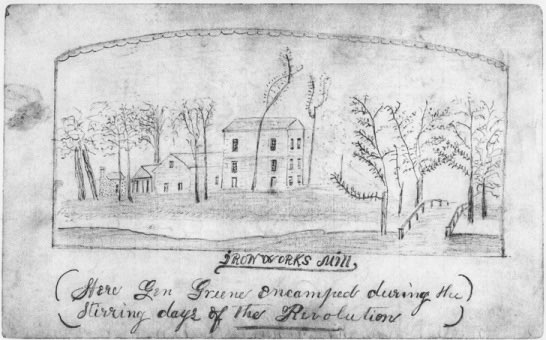 IRONWORKS Mill.
(Here Gen Greene encamped during the)
(Stirring days of the Revolution)